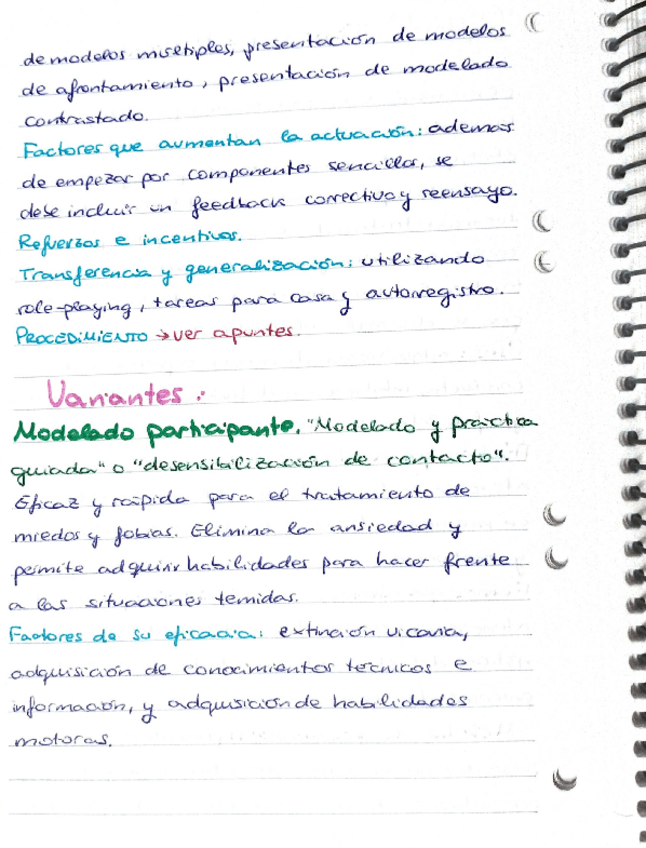 de modelos múltiples, presentación de modelos
de afrontamiento, presentación de modelado
contrastado.
Factores que aumentan la actuación: además
de empezar por componentes sencillos, se
debe incluir un feedback correctivo y reensayo.
Refuerzos e incentivos.
Transferencia y generalización: utilizando
role-playing, tareas para casa y autorregistro.
PROCEDIMIENTO → ver apuntes.
Variantes:
Modelado participante. "Modelado y práctica
guiada" o "desensibilización de contacto".
Eficaz y rápida para el tratamiento de
miedos y fobias. Elimina la ansiedad y
permite adquirir habilidades para hacer frente
a las situaciones temidas.
Factores de su eficacia: extinción vicaria,
adquisición de conocimientos técnicos e
información, y adquisición de habilidades
motoras.